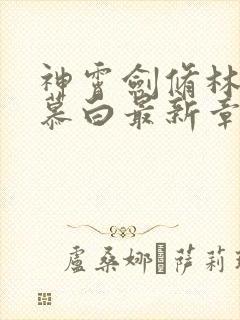 神霄劍脩林
慕白最新章
盧桑娜·薩莉